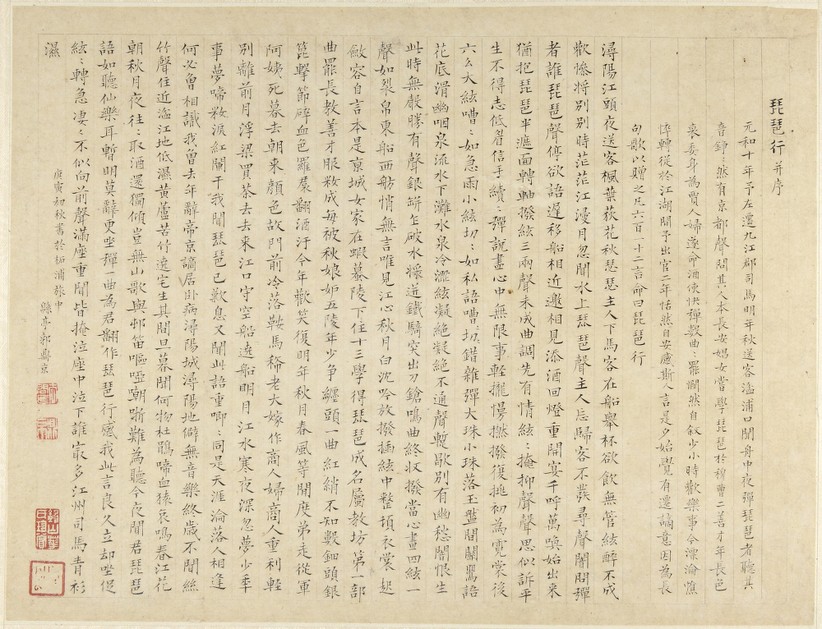 琵琶行 并序
元和十年予左遷九江郡司馬明年秋送客湓浦口聞舟中夜彈琵琶者聽其
音錚〻然有京都聲問其人本長安娼女嘗學琵琶於穆曹二善才年長色
衰委身為賈人婦遂命酒使快彈數曲〻罷憫然自敘少小時歡樂事今漂淪憔
悴轉徙於江湖間予出官二年恬然自安感斯人言是夕始覺有遷謫意因為長
句歌以贈之凡六百一十二言命曰琵琶行
潯陽江頭夜送客楓葉荻花秋瑟瑟主人下馬客在船舉杯欲飲無管絃醉不成
歡慘將別別時茫茫江浸月忽聞水上琵琶聲主人忘歸客不發尋聲闇問彈
者誰琵琶聲停欲語遲移船相近邀相見添酒回燈重開宴千呼萬喚始出來
猶抱琵琶半遮面轉軸撥絃三兩聲未成曲調先有情絃〻掩抑聲聲思似訴平
生不得志低眉信手續〻彈說盡心中無限事輕攏慢撚撥復挑初為霓裳後
六幺大絃嘈〻如急雨小絃切〻如私語嘈〻切〻錯雜彈大珠小珠落玉盤間關鶯語
花底滑幽咽泉流水下灘水泉冷澀絃凝絕凝絕不通聲暫歇別有幽愁闇恨生
此時無聲勝有聲銀缾乍破水漿迸鐵騎突出刀鎗鳴曲終收撥當心畫四絃一
聲如裂帛東船西舫悄無言唯見江心秋月白沈吟放撥插絃中整頓衣裳起
斂容自言本是京城女家在蝦蟇陵下住十三學得琵琶成名屬教坊第一部
曲罷長教善才服妝成每被秋娘妒五陵年少爭纏頭一曲紅綃不知數鈿頭銀
篦擊節碎血色羅裙翻酒汙今年歡笑復明年秋月春風等閒度弟走從軍
阿姨死暮去朝來顏色故門前冷落鞍馬稀老大嫁作商人婦商人重利輕
別離前月浮梁買茶去去來江口守空船遶船明月江水寒夜深忽夢少年
事夢啼妝淚紅闌干我聞琵琶已歎息又聞此語重唧〻同是天涯淪落人相逢
何必曾相識我曾去年辭帝京謫居臥病潯陽城潯陽地僻無音樂終歲不聞絲
竹聲住近湓江地低濕黃蘆苦竹遶宅生其間旦暮聞何物杜鵑啼血猿哀鳴春江花
朝秋月夜往〻取酒還獨傾豈無山歌與邨笛嘔啞嘲哳難為聽今夜聞君琵琶
語如聽仙樂耳暫明莫辭更坐彈一曲為君翻作琵琶行感我此言良久立却坐促
絃〻轉急凄〻不似向前聲滿座重聞皆掩泣座中泣下誰最多江州司馬青衫
濕
庚寅初秋寫於柘浦旅中